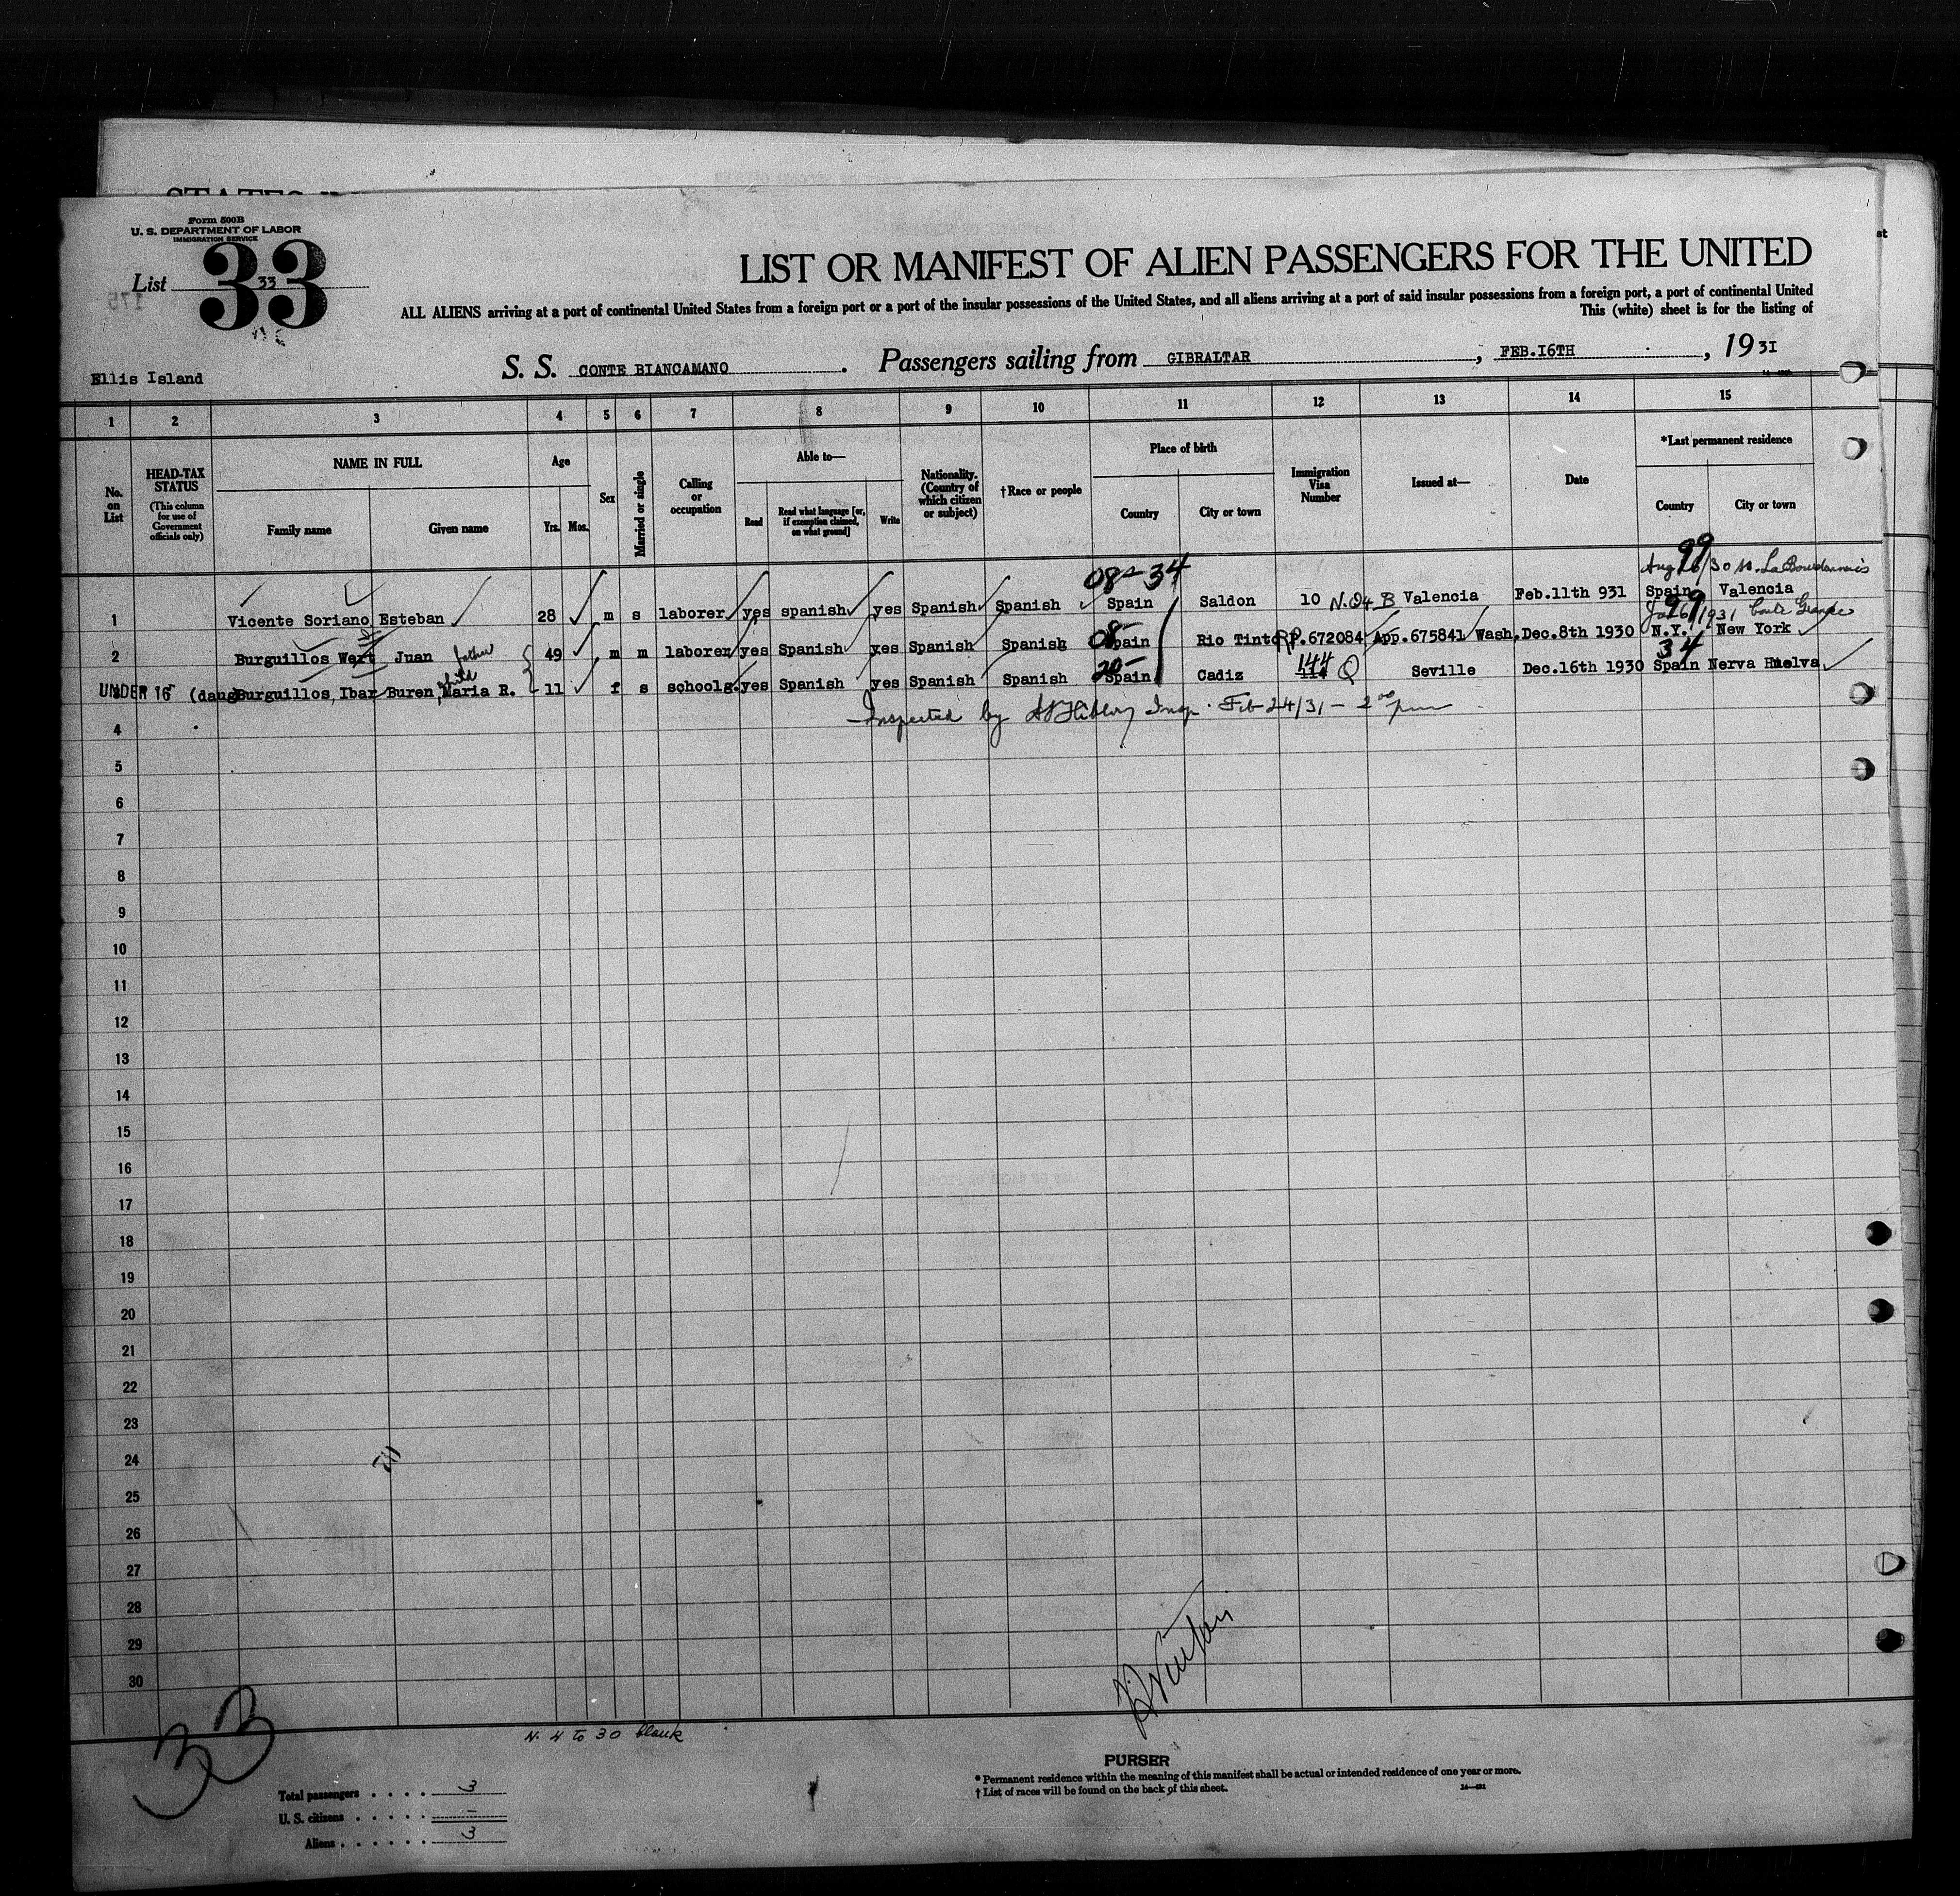 Form 500B
U. S. DEPARTMENT OF LABOR
IMMIGRATION SERVICE
List 33
33
175
LIST OR MANIFEST OF ALIEN PASSENGERS FOR THE UNITED
ALL ALIENS arriving at a port of continental United States from a foreign port or a port of the insular possessions of the United States, and all aliens arriving at a port of said insular possessions from a foreign port, a port of continental United
This (white) sheet is for the listing of
Ellis Island
S. S. CONTE BIANCAMANO. Passengers sailing from GIBRALTAR, FEB.16TH, 1931
1 2 3 4 5 6 7 8 9 10 11 12 13 14 15
No. on List
HEAD-TAX STATUS
(This column for use of Government officials only)
NAME IN FULL
Family name Given name
Age
Yrs. Mos.
Sex
Married or single
Calling or occupation
Able to—
Read
Read what language [or, if exemption claimed, on what ground]
Write
Nationality. (Country of which citizen or subject)
†Race or people
Place of birth
Country City or town
Immigration Visa Number
Issued at—
Date
*Last permanent residence
Country City or town
08- 34
99
Aug 26/30 ss. La Bourdonnais
1 Vicente Soriano, Esteban 28 m s laborer yes spanish yes Spanish Spanish Spain Saldon 10 N.Q4 B Valencia Feb.11th 931 Spain Valencia
99
1931 Conte Grande
2 Burguillos Wert Juan father 49 m m laborer yes Spanish yes Spanish Spanish 08- Spain Rio Tinto RP.672084 App.675841 Wash. Dec.8th 1930 N.Y. New York
34
UNDER 16 (daug Burguillos, Ibar Buren, Maria R. child 11 f s schoolg. yes Spanish yes Spanish Spanish 20- Spain Cadiz 144 114 Q Seville Dec.16th 1930 Spain Nerva Huelva
Inspected by Insp. Feb 24/31 - 2 00 pm
4
5
6
7
8
9
10
11
12
13
14
15
16
17
18
19
20
21
22
23
24
25
26
27
28
29
30
33
N. 4 to 30 blank
PURSER
* Permanent residence within the meaning of this manifest shall be actual or intended residence of one year or more.
† List of races will be found on the back of this sheet.
Total passengers . . . . 3
U. S. citizens . . . . . —
Aliens . . . . . . 3